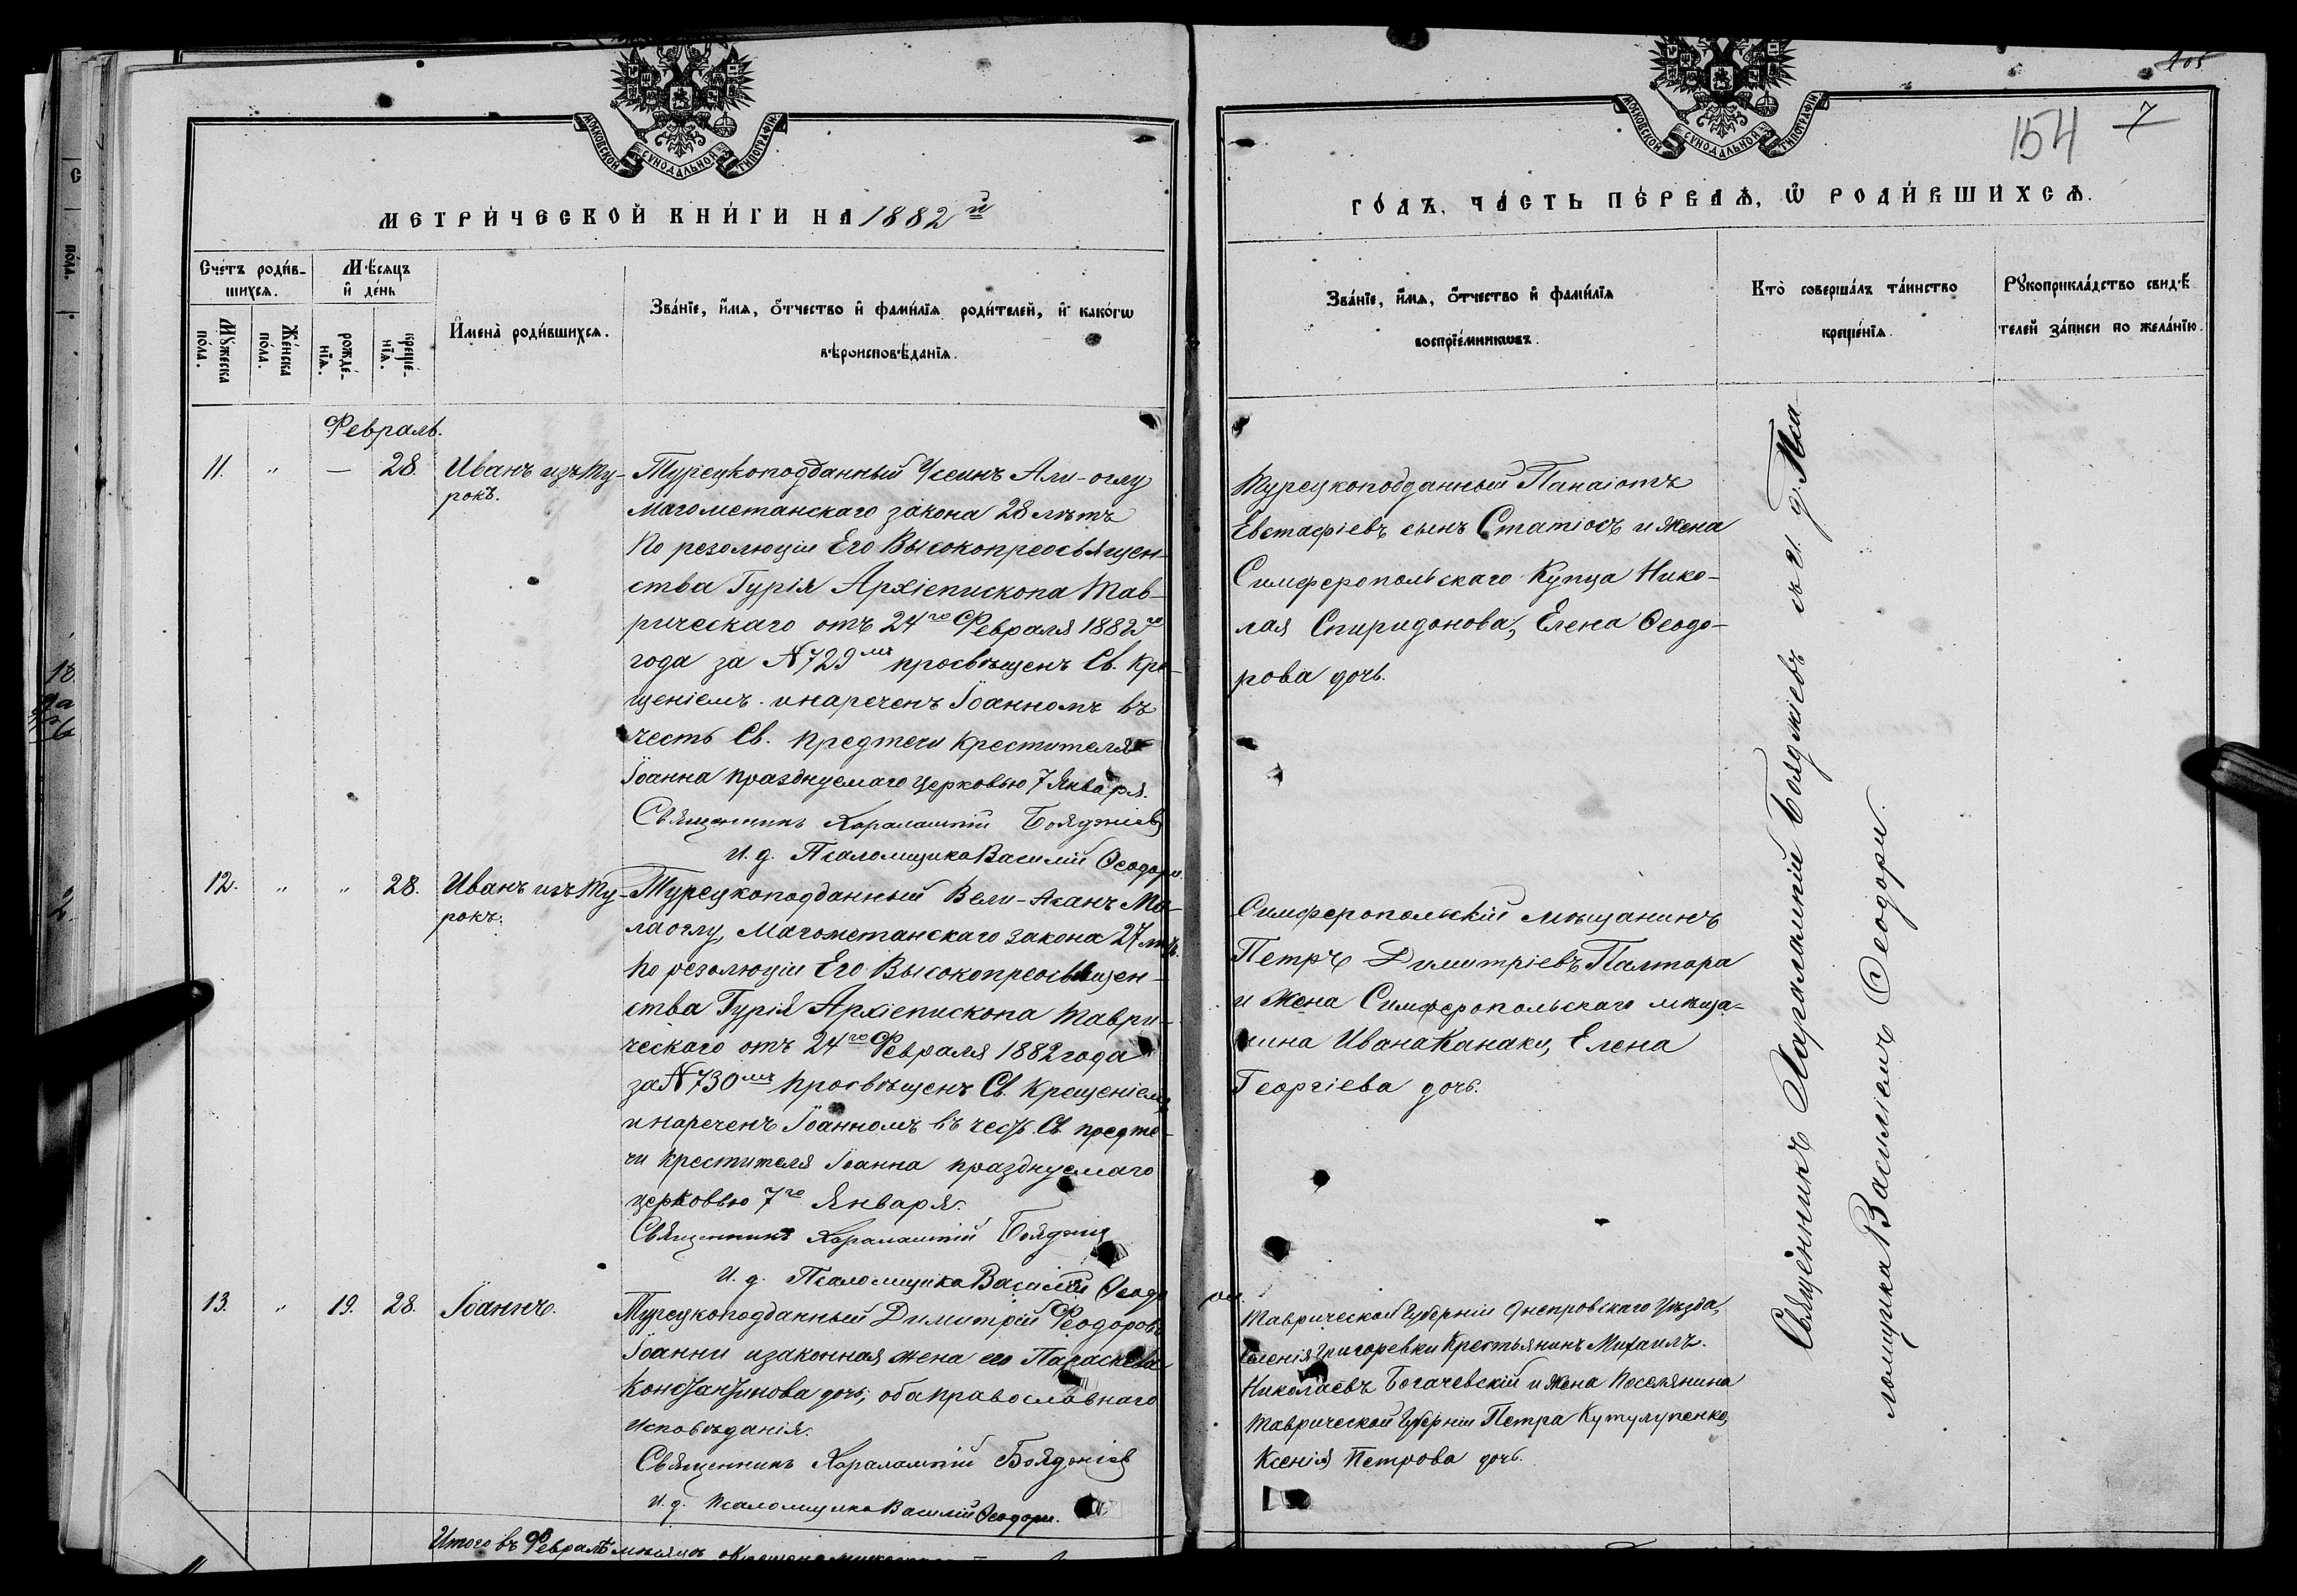 МОСКОВСКОЙ СѴНОДАЛЬНОЙ ТИПОГРАФІИ
МЕТРИ́ЧЕСКОЙ КНИ́ГИ НА 1882й
Сче́тъ роди́в-
шихсѧ.
Мѣ́сѧцъ
и҆ де́нь
Мꙋ́жеска
по́ла.
Же́нска
по́ла.
рожде́-
нїѧ.
креще́-
нїѧ.
И҆мена̀ роди́вшихсѧ.
Зва́нїе, и҆́мѧ, ѻ҆́тчество и҆ фами́лїѧ роди́телей, и҆ како́гѡ
вѣроисповѣ́данїѧ.
Февраль.
11. " — 28.
Иванъ изъ Ту-
рокъ.
Турецкоподданный Усеинъ Али-оглу
Магометанскаго закона 28 лѣтъ
По резолюціи Его Высокопреосвящен-
ства Гурія Архіепископа Тав-
рическаго отъ 24го Февраля 1882го
года за №729мъ просвѣщенъ Св. Кре-
щеніемъ и нареченъ Іоанномъ въ
честь Св. Предтечи Крестителя
Іоанна празднуемаго церковью 7 Января.
Священникъ Харалампій Бояджіевъ
И. д. Псаломщика Василій Ѳеодори.
12. " " 28.
Иванъ изъ Ту-
рокъ.
Турецкоподданный Вели-Асанъ Мо-
лаоглу, Магометанскаго закона 27 лѣтъ.
По резолюціи Его Высокопреосвящен-
ства Гурія Архіепископа Таври-
ческаго отъ 24го Февраля 1882 года
за №730мъ просвѣщенъ Св. Крещеніемъ
и нареченъ Іоанномъ въ честь Св. предте-
чи крестителя Іоанна празднуемаго
церковью 7го Января.
Священникъ Харалампій Бояджіевъ
И. д. Псаломщика Василій Ѳеодори.
13. " 19. 28.
Іоаннъ.
Турецкоподданный Димитрій Феодоровъ
Іоанни и законная жена его Параскева
Константинова дочь, оба православнаго
исповѣданія.
Священникъ Харалампій Бояджіевъ
И. д. Псаломщика Василій Ѳеодори.
Итого въ Февралѣ мѣсяцѣ
105
154 7
МОСКОВСКОЙ СѴНОДАЛЬНОЙ ТИПОГРАФІИ
ГО́ДЪ, ЧА́СТЬ ПЕ́РВАѦ, Ѽ РОДИ́ВШИХСѦ.
Зва́нїе, и҆́мѧ, ѻ҆́тчество и҆ фами́лїѧ
воспрїе́мникѡвъ.
Кто̀ соверша́лъ та́инство
креще́нїѧ.
Рꙋкоприкла́дство свидѣ́-
телей за́писи по жела́нїю.
Турецкоподданный Панаіотъ
Евстафіевъ сынъ Статіосъ и жена
Симферопольскаго Купца Нико-
лая Спиридонова, Елена Ѳеодо-
рова дочь.
Симферопольскій мѣщанинъ
Петръ Димитріевъ Палтара
и жена Симферопольскаго мѣща-
нина Ивана Канаки, Елена
Георгіева дочь.
Таврической Губерніи Днепровскаго Уѣзда,
селенія Григоревки Крестьянинъ Михаилъ
Николаевъ Богачевскій и жена Поселянина
Таврической Губерніи Петра Кутулупенко,
Ксенія Петрова дочь.
Священникъ Харалампій Бояджіевъ съ и. д. Пса-
ломщика Василіемъ Ѳеодори.